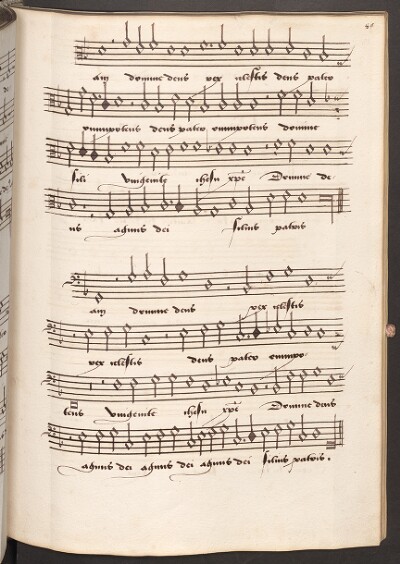 am domine deus rex celestis deus pater
omnipotens deus pater omnipotens domine
fili unigenite ihesu xpe Domine de
us agnus dei filius patris
am domine deus rex celestis
rex celestis deus pater omnipo
tens unigenite ihesu xpe Domine deus
agnus dei agnus dei agnus dei filius patris.